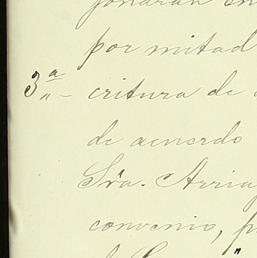 por mitad
3ª critura de
de acuerdo
Sra. Arria
convenio, p